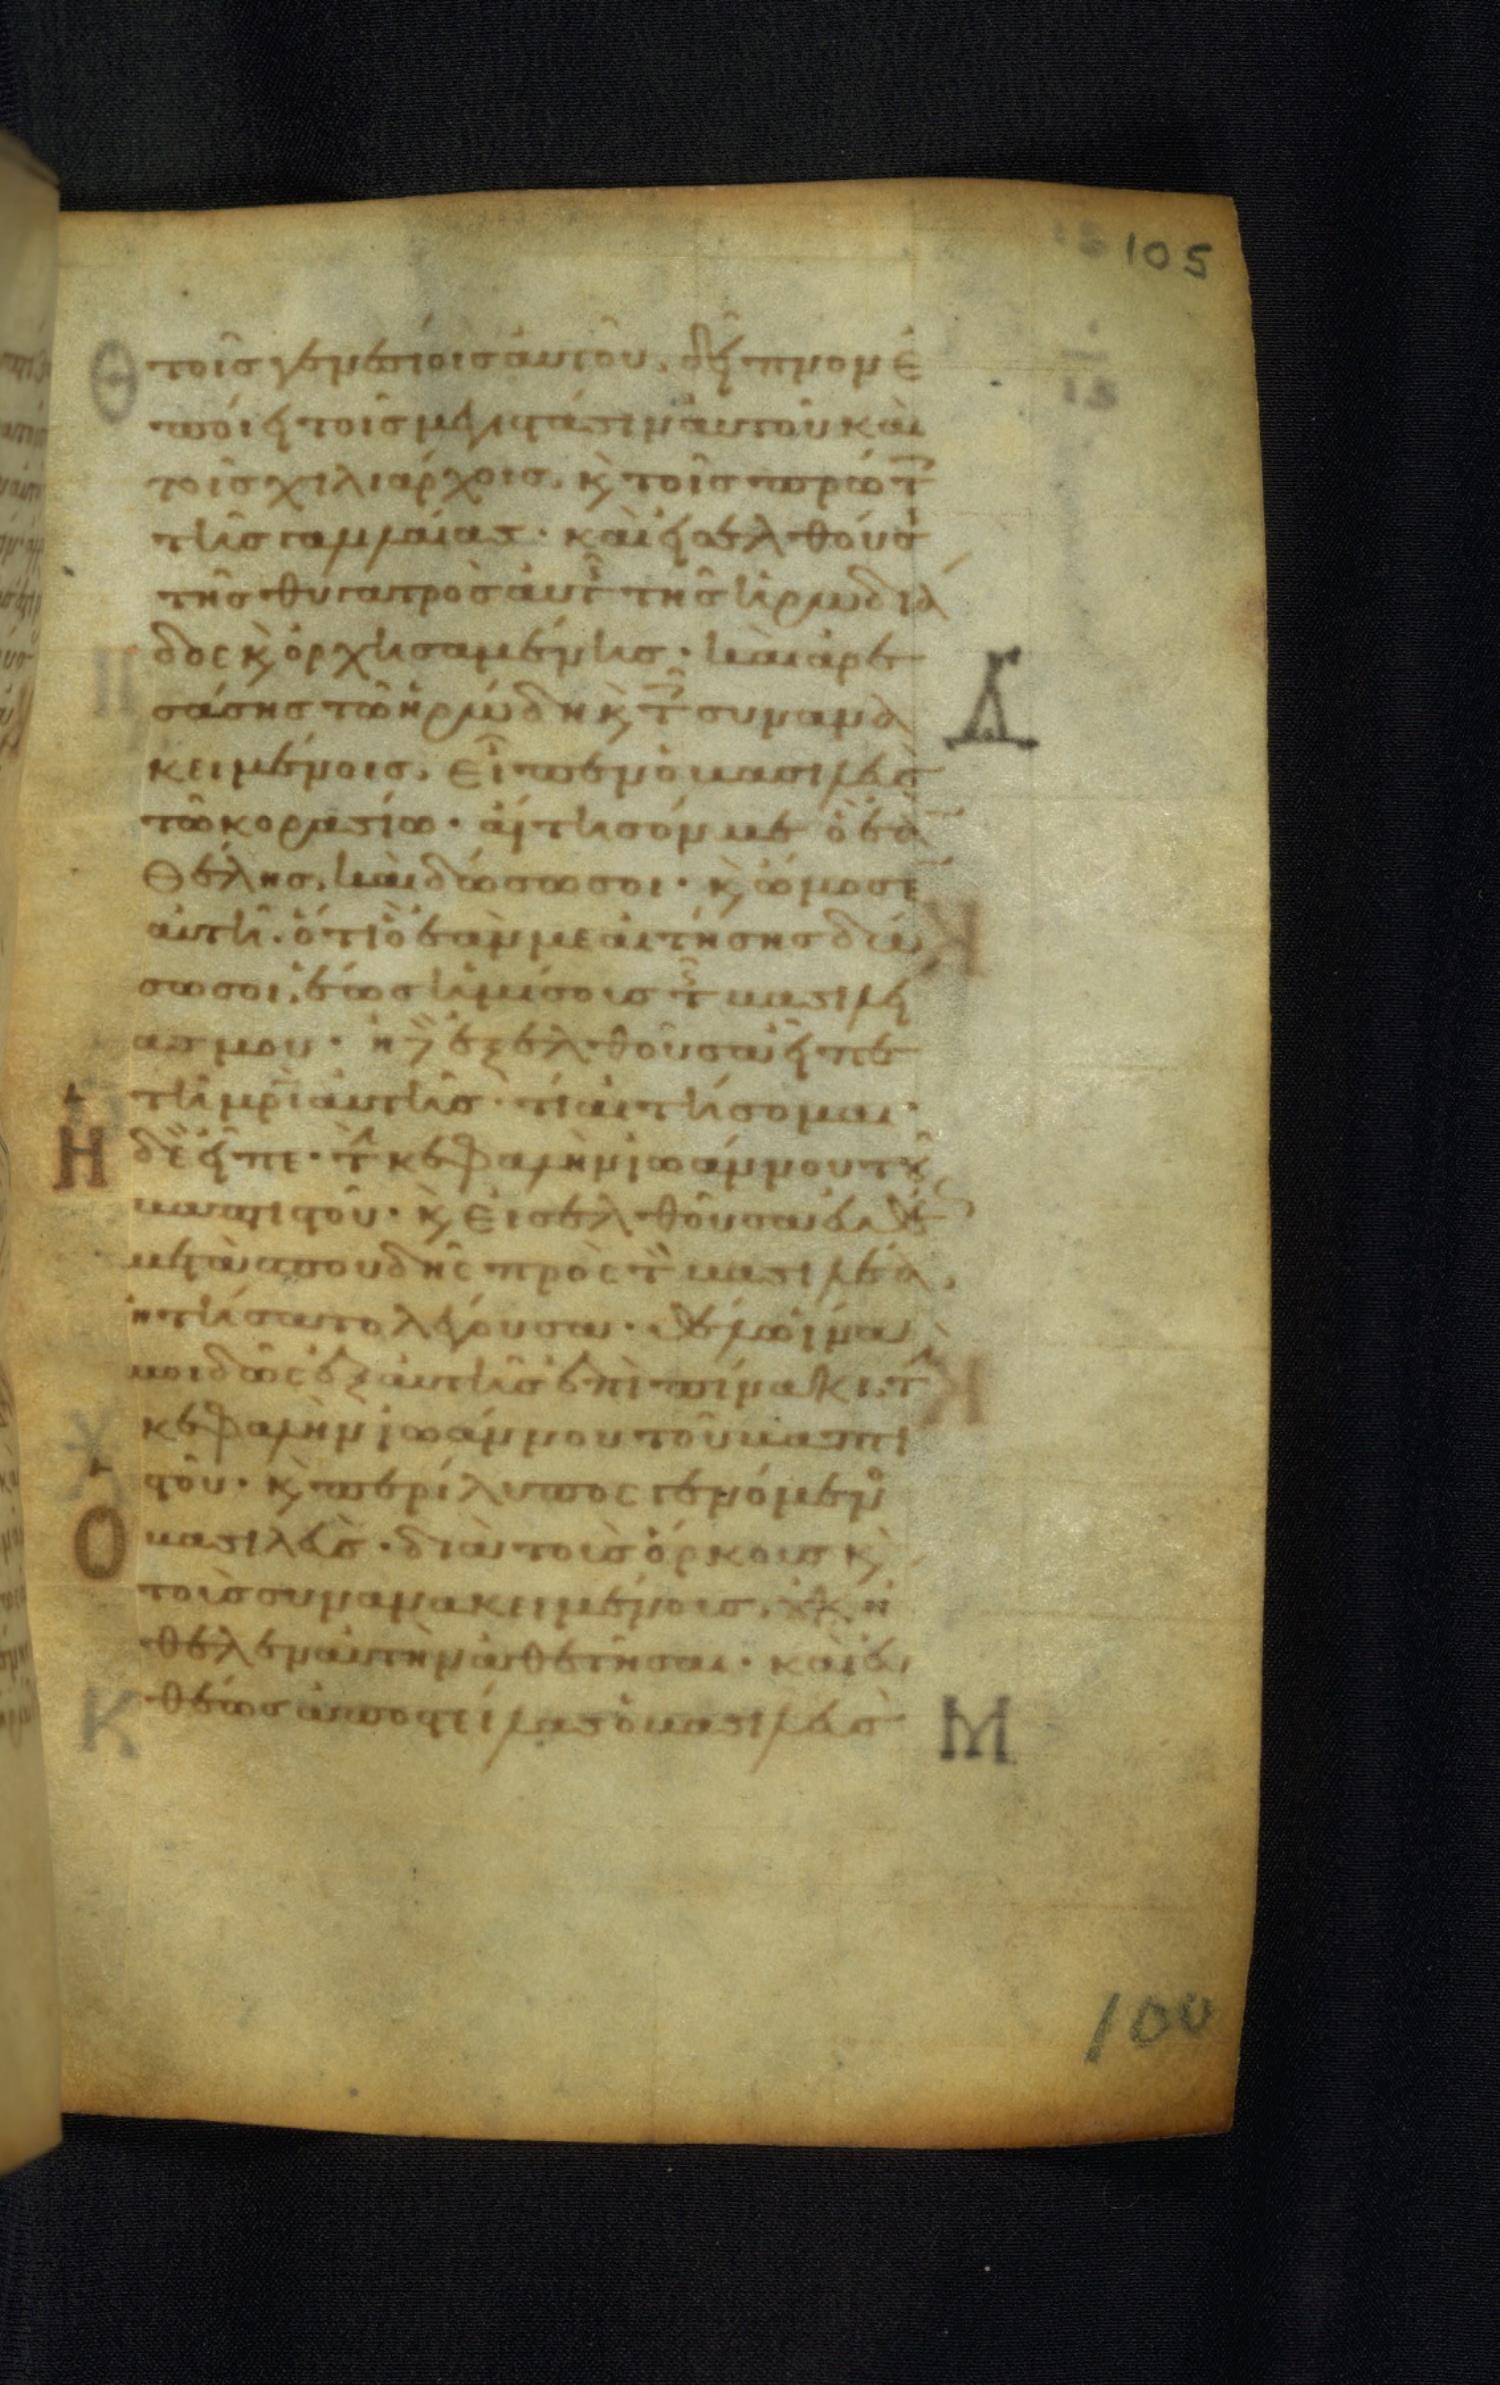 105
τοῖς γενεσίοις αὐτοῦ. δεῖπνον ἐ
ποίει τοῖς μεγιστᾶσιν αὐτοῦ καὶ
τοῖς χιλιάρχοις. κ̀ τοῖς πρώτ
τῆς γαλιλαίας · καὶ εἰσελθούσ
τῆς θυγατρὸς αὐτ τῆς ἡρωδιά
δος κ̀ ὀρχησαμένης · καὶ ἀρε
σάσης τῶ ἡρώδη κ̀ τ συνανα
κειμένοις. εἶπεν ὁ βασιλεὺς
τῶ κορασίω · αἴτησόν με ὃ ἐὰ
θέλης. καὶ δώσω σοι · κ̀ ὤμοσε
αὐτῆ. ὅτι ὃ ἐάν με αἰτήσης δώ
σω σοι. ἕως ἡμίσοις τ βασιλεί
ας μου · ἡ δὲ ἐξελθοῦσα εἶπε
τῆ μρι αὐτῆς · τί αἰτήσομαι ·
Η δὲ εἶπε · τ κεφαλὴν ἰωάννου τοῦ
βαπτιστοῦ · κ̀ εἰσελθοῦσα εὐθὺς
μετὰ σπουδῆς πρὸς τ βασιλέα.
ἠτήσατο λέγουσα · θέλω ἵνα
μοι δῶς ἐξ αὐτῆς ἐπὶ πίνακι τ
κεφαλὴν ἰωάννου τοῦ βαπτι
στοῦ · κ̀ περίλυπος γενόμεν
Ο βασιλεὺς · διὰ τοὺς ὅρκους κ̀
τοὺς συνανακειμένοις. οὐκ ἠ
θέλεν αὐτὴν ἀθετῆσαι · καὶ εὐ
θέως ἀποστείλας ὁ βασιλεὺς
100